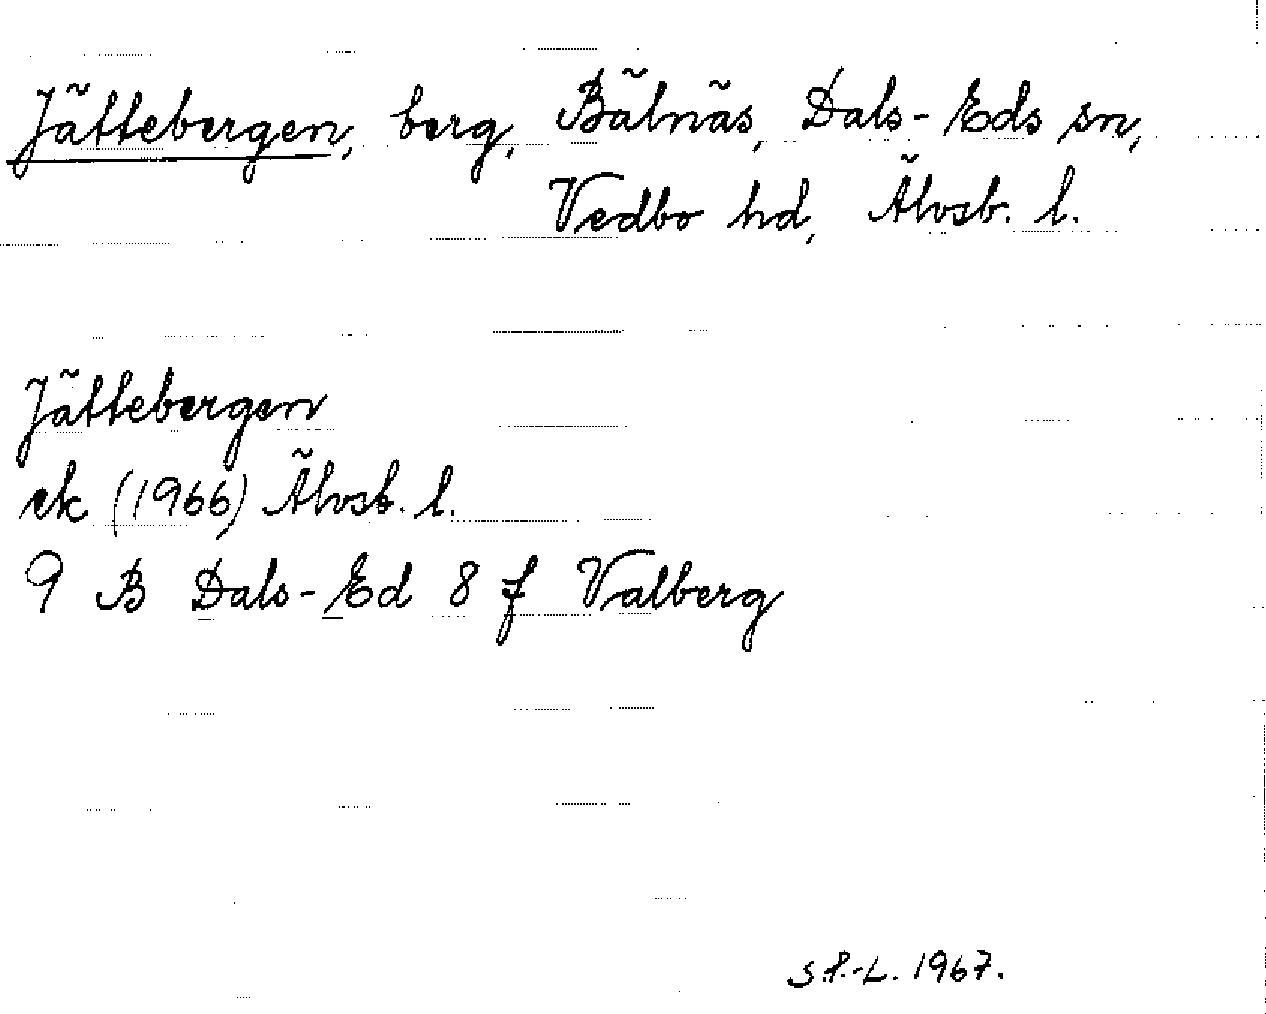 Jättebergen, berg, Bälnäs, Dals-Eds sn,
Vedbo hd, Älvsb. l.
Jättebergen
ek (1966) Älvsb. l.
9 B Dals-Ed 8 f Valberg
S.P.-L. 1967.